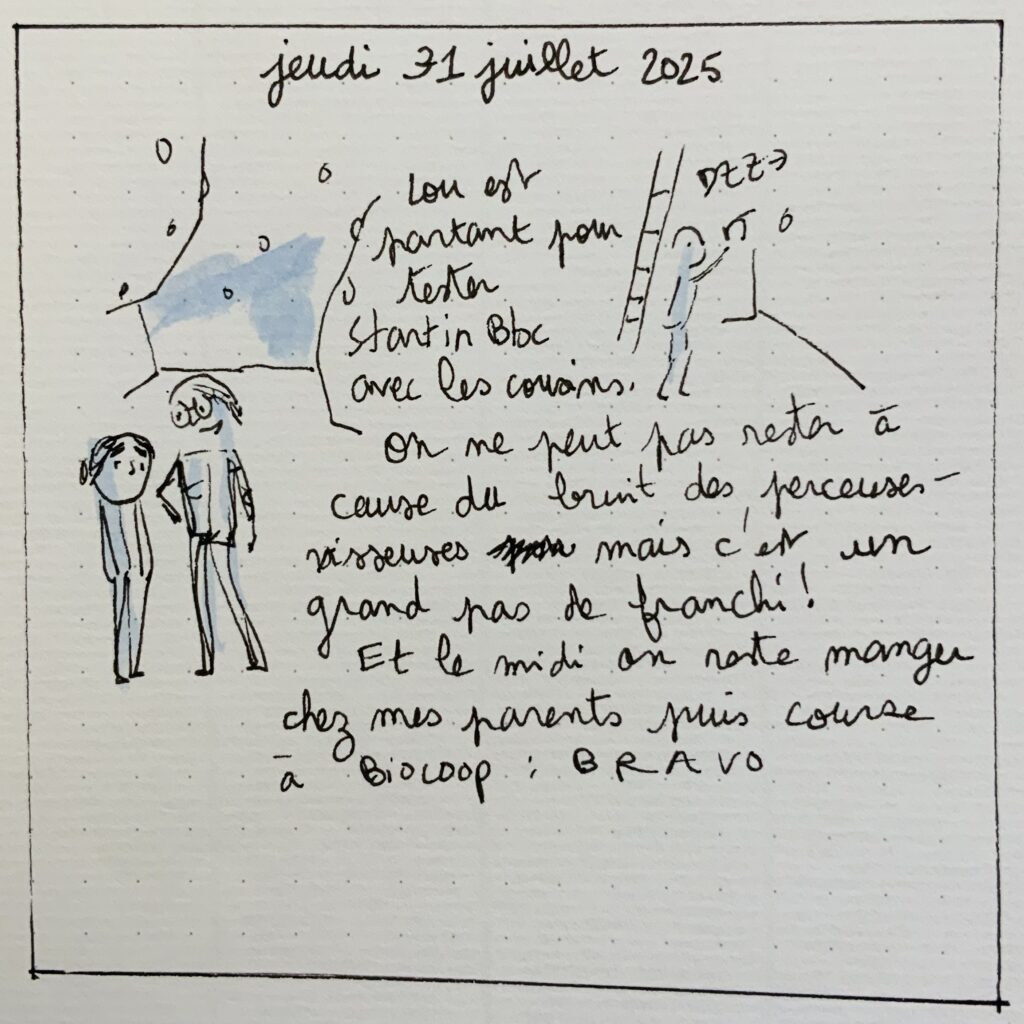 jeudi 31 juillet 2025
DZZZ
Lou est
partant pour
tester
Startin Bloc
avec les cousins.
on ne peut pas rester à
cause du bruit des perceuses-
visseuses mais c'est un
grand pas de franchi!
Et le midi on reste manger
chez mes parents puis course
à Biocoop : BRAVO